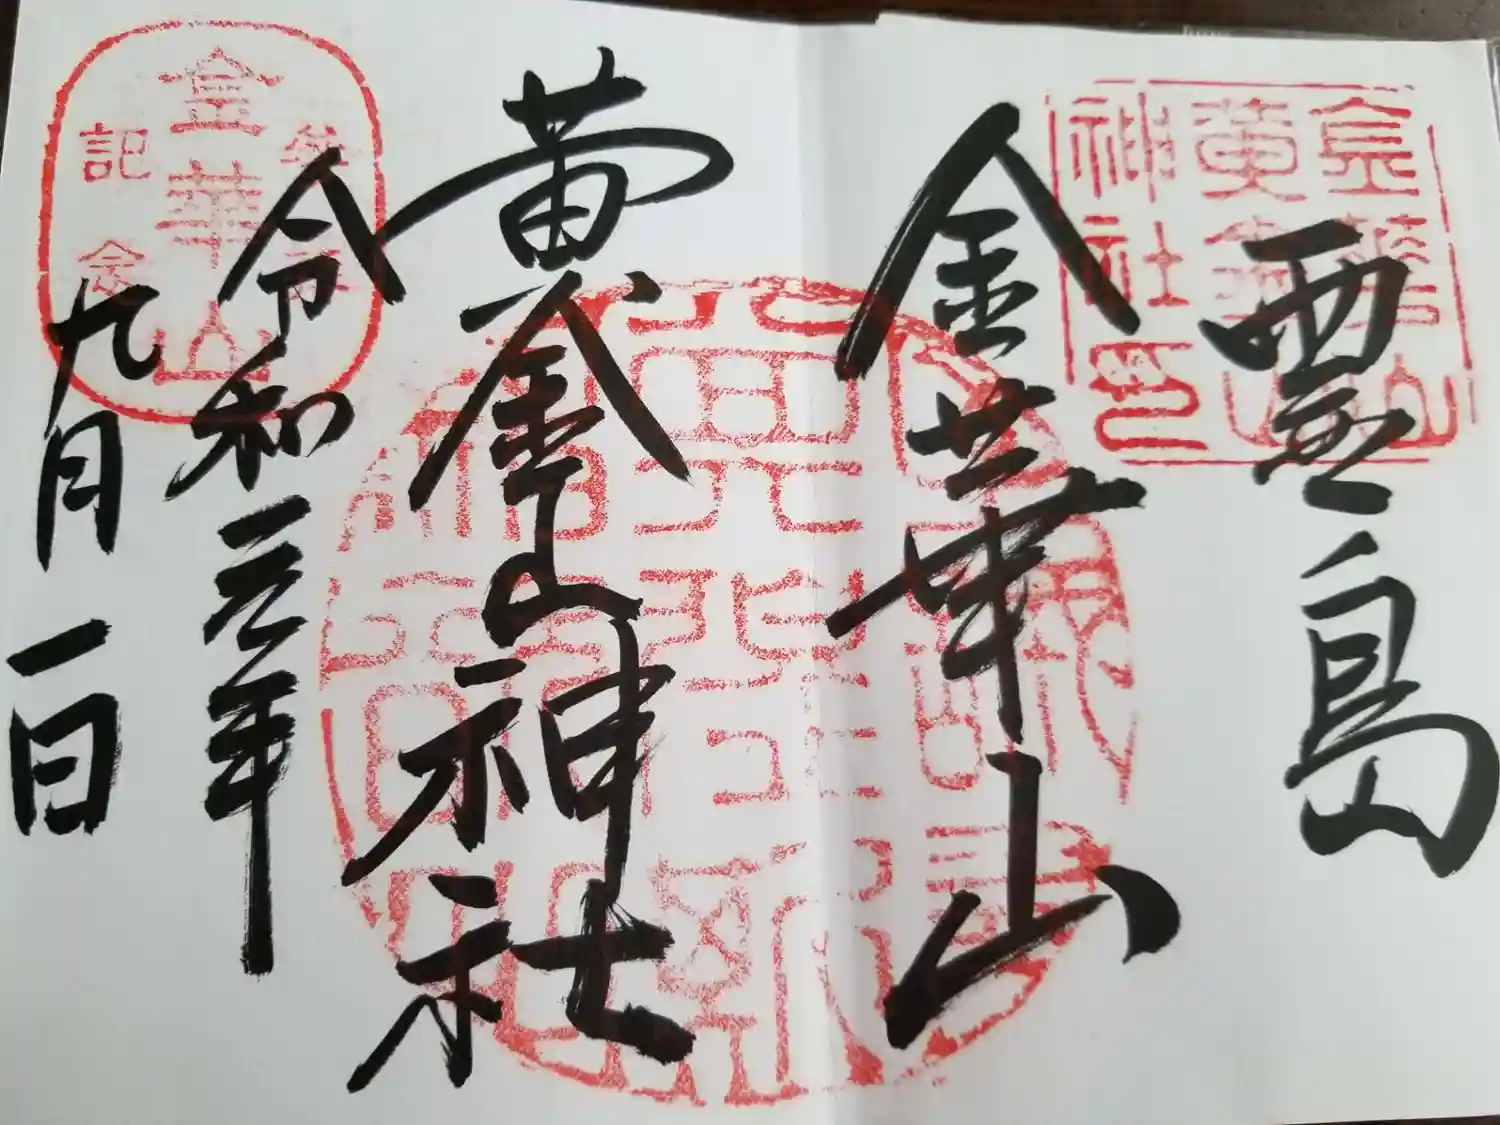 霊島
金華山
黄金山神社
令和元年
九月一日
金華山
黄金山
神社印
参拝
金華山
記念